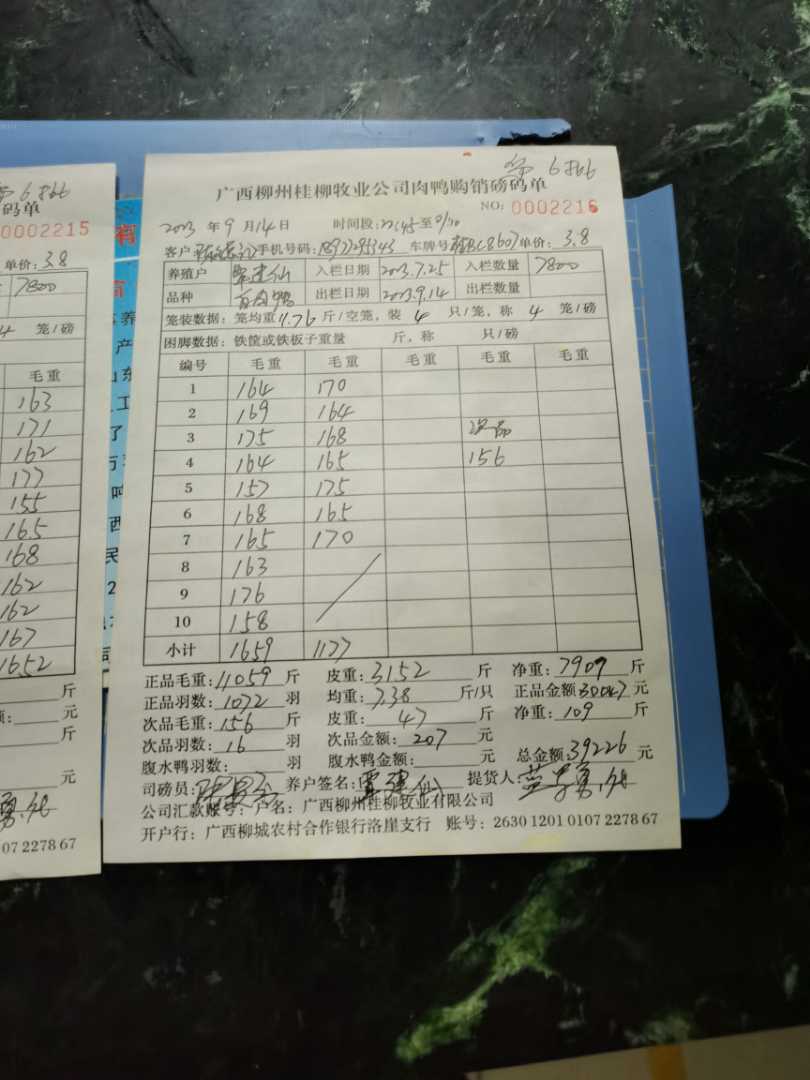 码单
0002215
单价:3.8
7800
笼/磅
毛重
163
171
162
177
155
165
168
162
162
167
1652
斤
元
斤
元
07 2278 67
有
广西柳州桂柳牧业公司肉鸭购销磅码单
NO: 0002216
2023 年 9 月 14 日 时间段: 至
客户: 手机号码: 车牌号: 单价: 3.8
养殖户 入栏日期 2023.7.25 入栏数量 7800
品种 出栏日期 2023.9.14 出栏数量
笼装数据: 笼均重 11.76 斤/空笼, 装 4 只/笼, 称 4 笼/磅
困脚数据: 铁筐或铁板子重量 斤, 称 只/磅
编号 毛重 毛重 毛重 毛重 毛重
1 164 170
2 169 164
3 175 168 次品
4 164 165 156
5 157 175
6 168 165
7 165 170
8 163
9 176
10 158
小计 1659 1177
正品毛重: 11059 斤 皮重: 3152 斤 净重: 7907 斤
正品羽数: 1072 羽 均重: 7.38 斤/只 正品金额: 30047 元
次品毛重: 156 斤 皮重: 47 斤 净重: 109 斤
次品羽数: 16 羽 次品金额: 207 元
腹水鸭羽数: 羽 腹水鸭金额: 元 总金额: 39226 元
司磅员: 养户签名: 提货人:
公司汇款账号: 户名: 广西柳州桂柳牧业有限公司
开户行: 广西柳城农村合作银行洛崖支行 账号: 2630 1201 0107 2278 67